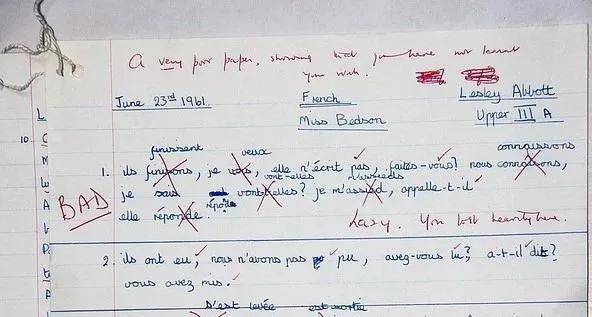 A very poor paper, showing that you have not learnt
your work.
June 23rd 1961. French Lesley Abbott
Miss Bedson Upper III A
finissent veux connaissons
10. 1. ils finissons, je vous, elle n'écrit pas, faites-vous? nous connaisons,
vont-elles m'assieds
BAD je sais vontelles? je m'assied, appelle-t-il
répond
elle réponde. Lazy. You lost heavily here.
2. ils ont eu, nous n'avons pas pu, avez-vous lu? a-t-il dit?
vous avez mis.
s'est levée est sortie